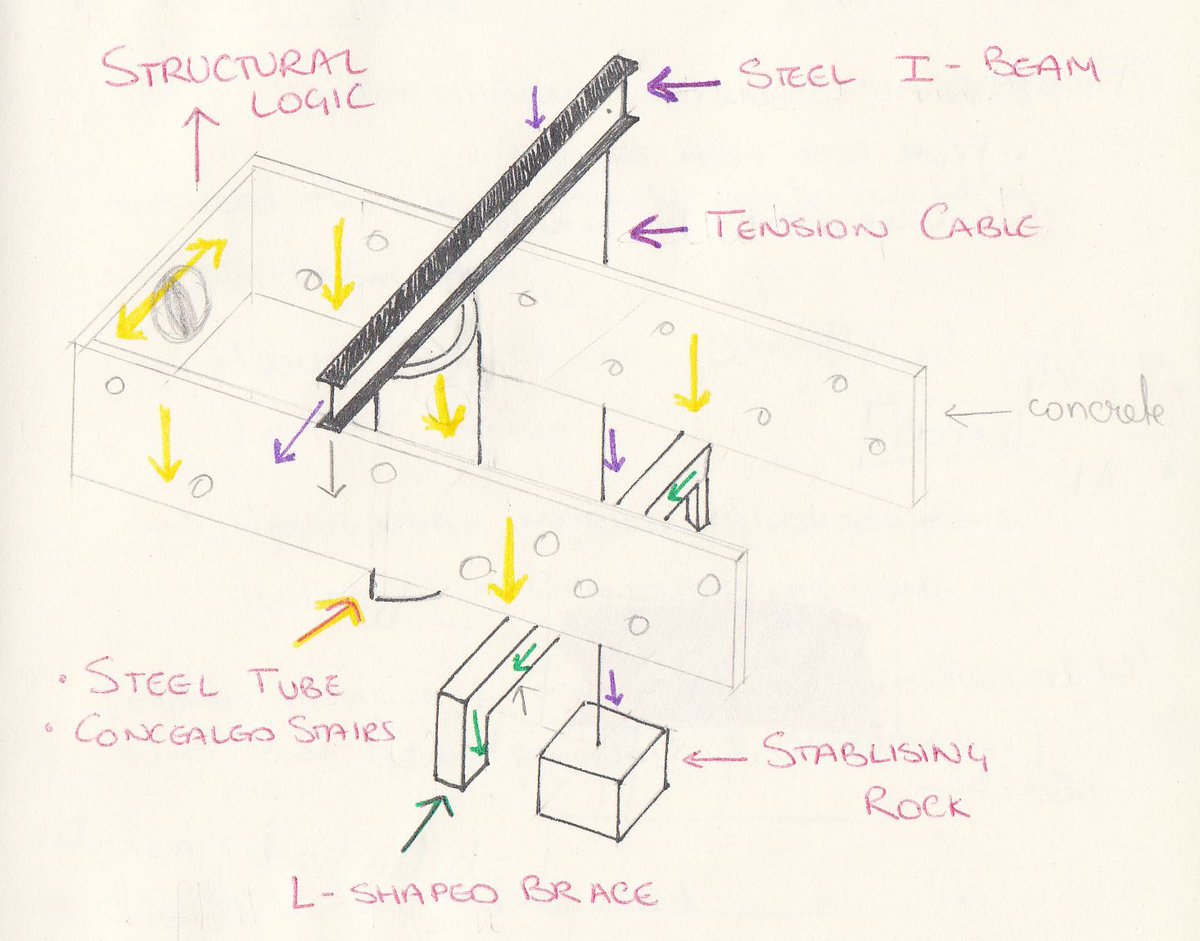 STRUCTURAL
LOGIC
STEEL I-BEAM
TENSION CABLE
concrete
• STEEL TUBE
• CONCEALED STAIRS
STABLISING
ROCK
L-SHAPED BRACE